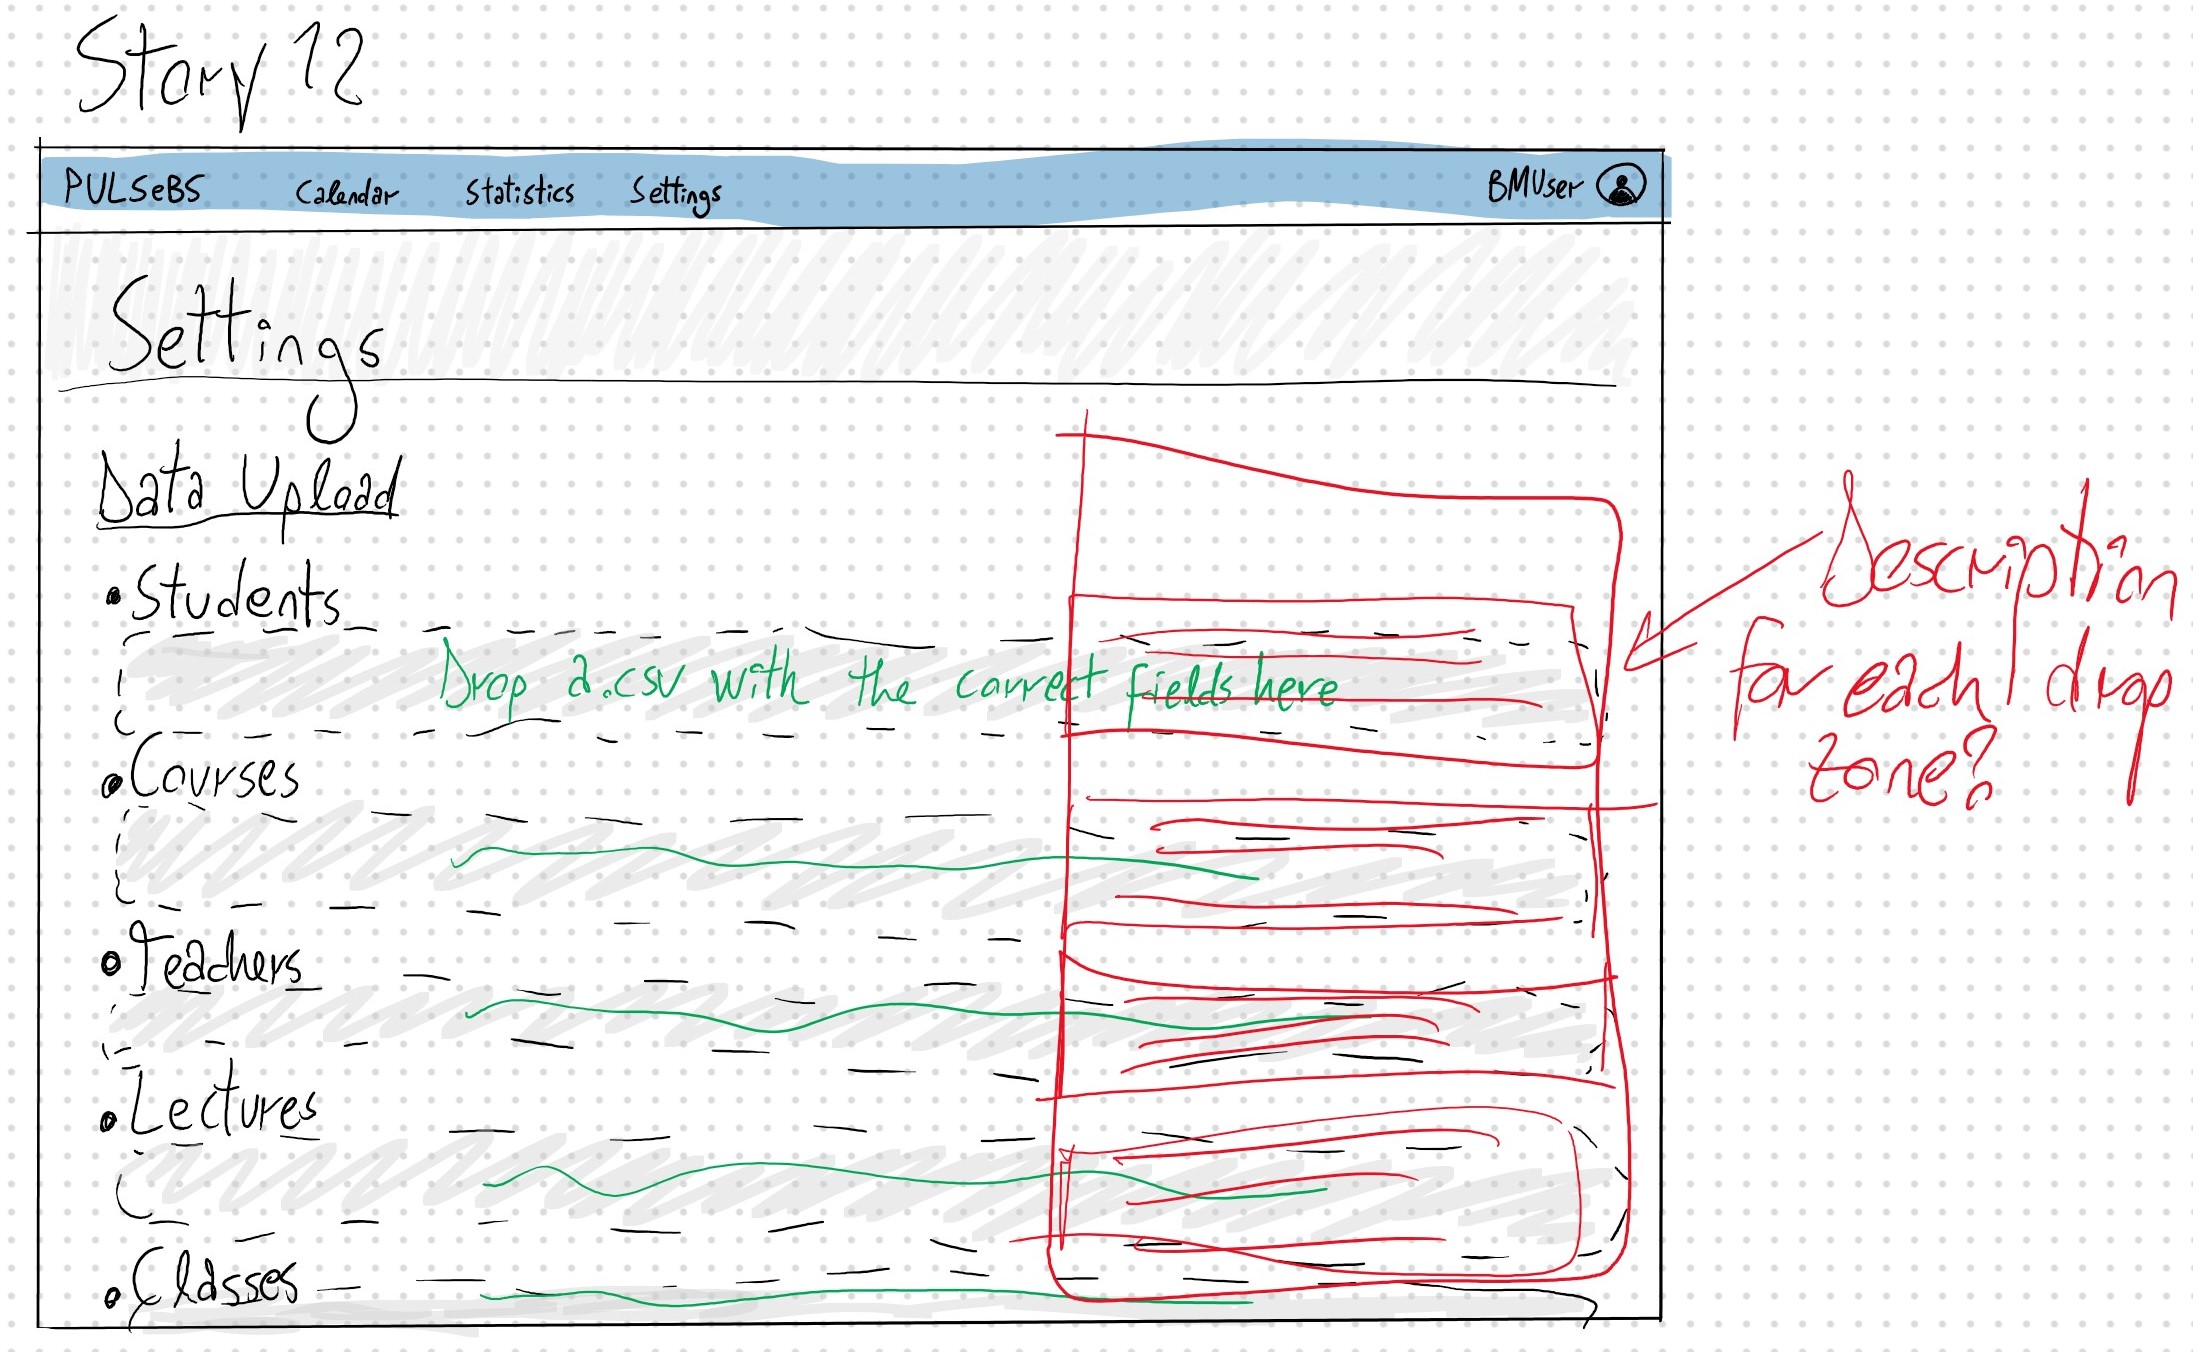 Story 12
PULSeBS Calendar Statistics Settings BMUser
Settings
Data Upload
• Students
Drop a .csv with the correct fields here
• Courses
• Teachers
• Lectures
• Classes
Description
for each drop
zone?